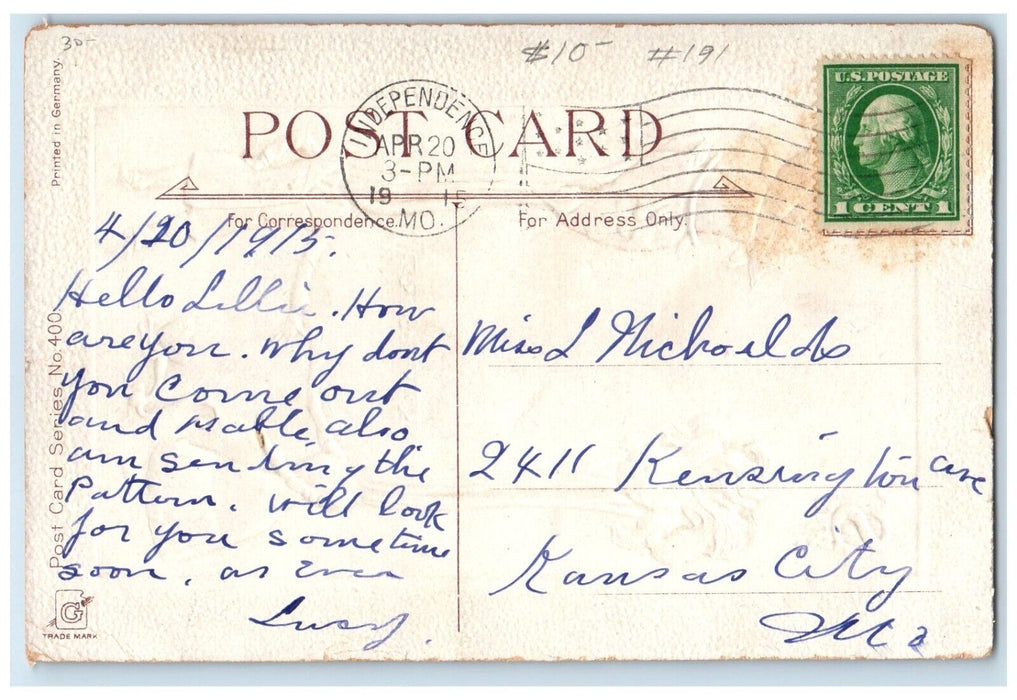 30-
#10- #191
Printed in Germany.
POST CARD
INDEPENDENCE
APR 20
3-PM
19 15
MO.
U.S. POSTAGE
1 CENT 1
For Correspondence.
For Address Only.
4/20/1915.
Hello Lillie. How
are you. Why dont
you come out
and Mable also
am sending the
Pattern. will look
for you sometime
soon. as Ever
Lucy.
Miss L Nichoelds
2411 Kensington ave
Kansas City
Mo
Post Card Series No. 400.
G
TRADE MARK